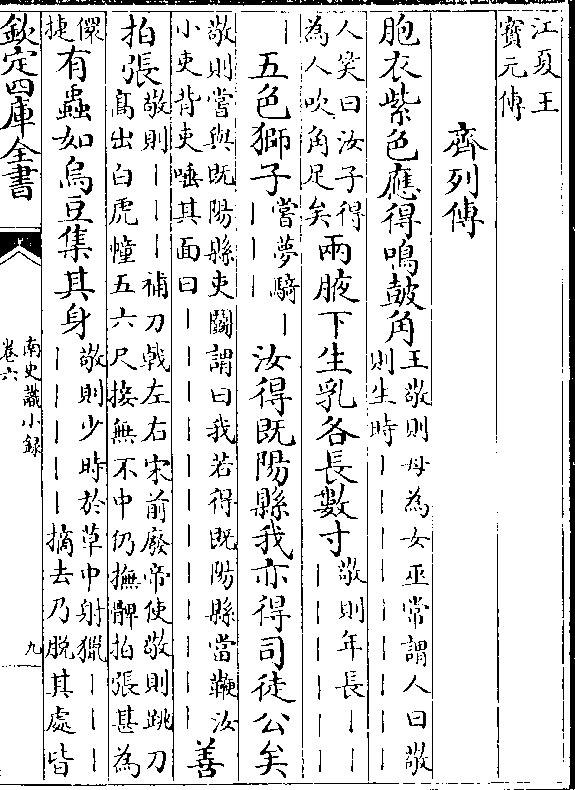 江夏王
寳元傳
齊列傳
胞衣紫色應得鳴鼓角王敬則母為女巫常謂人曰敬
則生時｜｜｜｜｜｜｜｜
人笑曰汝子得
為人吹角足矣兩腋下生乳各長數寸敬則年長｜｜
｜｜｜｜｜｜｜
｜五色獅子嘗夢騎｜
｜｜｜汝得既陽縣我亦得司徒公矣
敬則嘗與既陽縣吏鬭謂曰我若得既陽縣當鞭汝
小吏背吏唾其面曰｜｜｜｜｜｜｜｜｜｜｜善
拍張敬則｜｜｜補刀戟左右宋前廢帝使敬則跳刀
髙出白虎幢五六尺接無不中仍撫髀拍張甚為
儇
捷有蟲如烏豆集其身敬則少時於草中射獵｜｜
｜｜｜｜｜摘去乃脫其處皆
欽定四庫全書
南史識小録
卷六
九